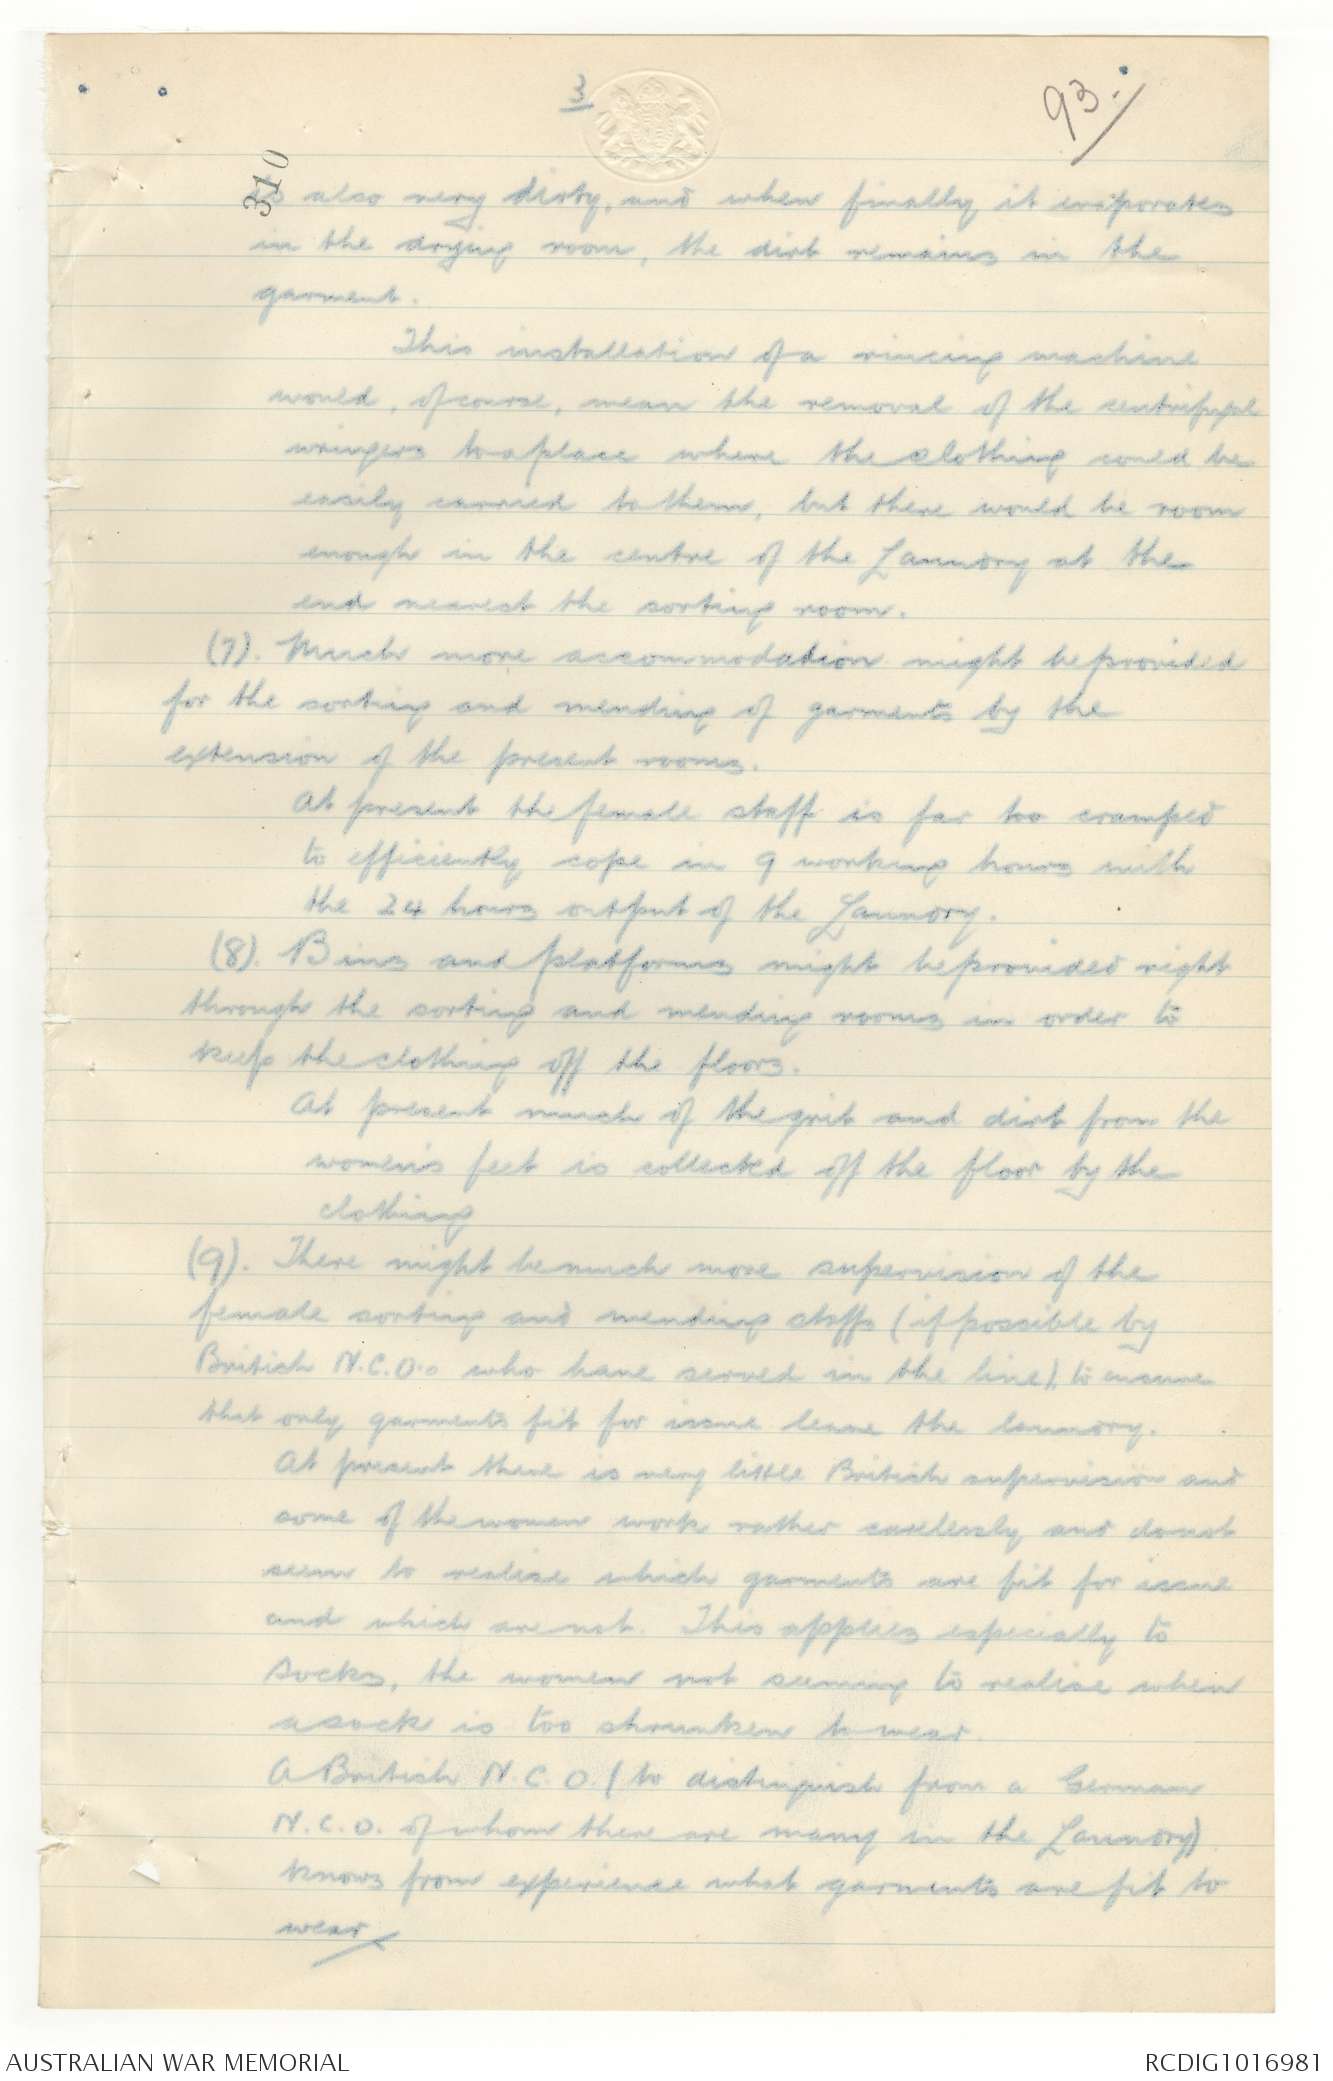 3
93.
310
is also very dirty, and when finally it evaporates
in the drying room, the dirt remains in the
garment.
This installation of a rincing machine
would, of course, mean the removal of the centrifugal
wringers to a place where the clothing could be
easily carried to them, but there would be room
enough in the centre of the Laundry at the
end nearest the sorting room.
(7). Much more accommodation might be provided
for the sorting and mending of garments by the
extension of the present rooms.
At present the female staff is far too cramped
to efficiently cope in 9 working hours with
the 24 hours output of the Laundry.
(8). Bins and platforms might be provided right
through the sorting and mending rooms in order to
keep the clothing off the floors.
At present much of the grit and dirt from the
women's feet is collected off the floor by the
clothing
(9). There might be much more supervision of the
female sorting and mending staffs (if possible by
British N.C.O.s who have served in the line) to ensure
that only garments fit for issue leave the laundry.
At present there is very little British supervision and
some of the women work rather carelessly and do not
seem to realise which garments are fit for issue
and which are not. This applies especially to
Socks, the women not seeming to realise when
a sock is too shrunken to wear.
A British N.C.O. (to distinguish from a German
N.C.O. of whom there are many in the Laundry)
knows from experience what garments are fit to
wear
AUSTRALIAN WAR MEMORIAL
RCDIG1016981